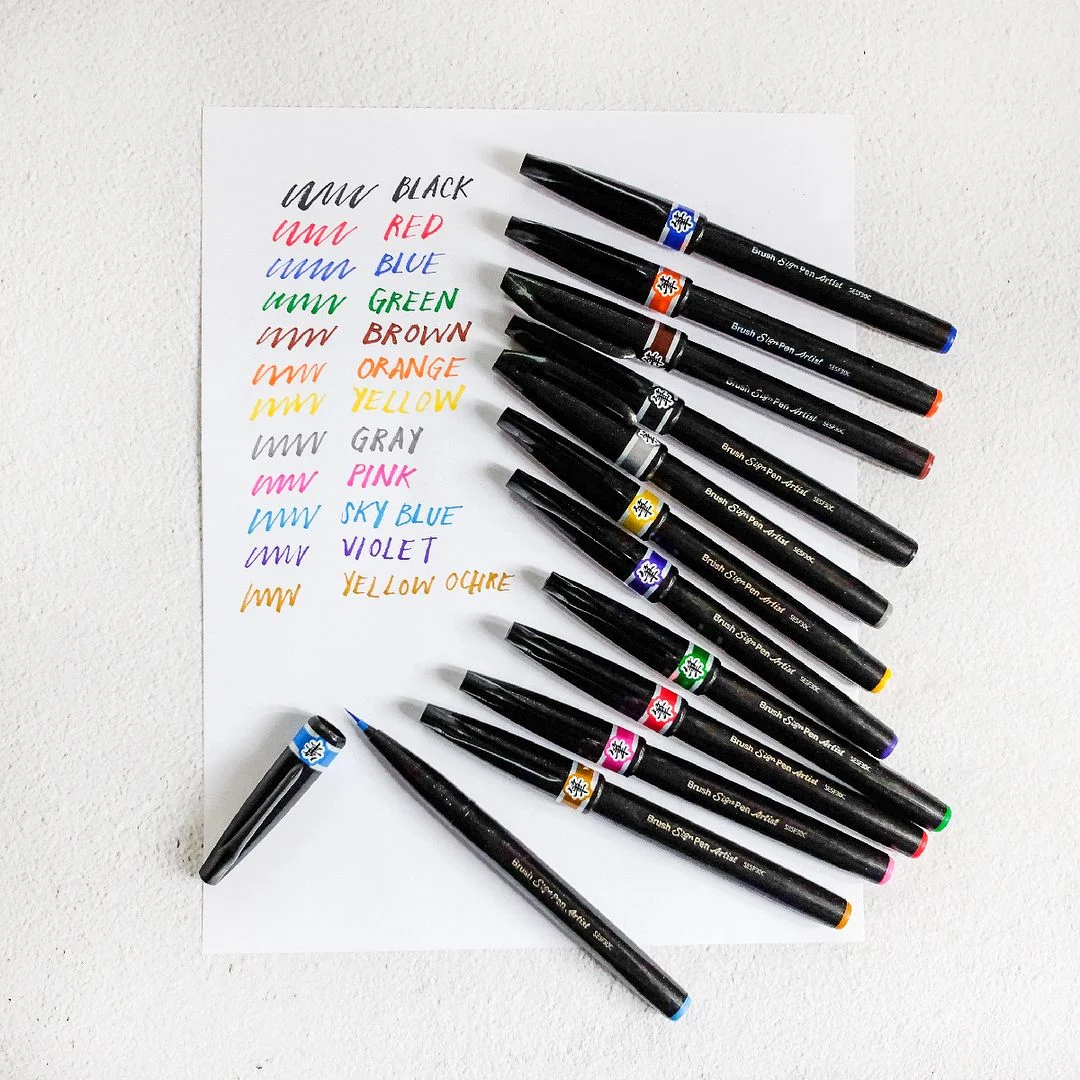 BLACK
RED
BLUE
GREEN
BROWN
ORANGE
YELLOW
GRAY
PINK
SKY BLUE
VIOLET
YELLOW OCHRE
筆
Brush Sign Pen Artist SESF30C
筆
Brush Sign Pen Artist SESF30C
筆
Brush Sign Pen Artist SESF30C
筆
Brush Sign Pen Artist SESF30C
筆
Brush Sign Pen Artist SESF30C
筆
Brush Sign Pen Artist SESF30C
筆
Brush Sign Pen Artist SESF30C
筆
Brush Sign Pen Artist SESF30C
筆
Brush Sign Pen Artist SESF30C
筆
Brush Sign Pen Artist SESF30C
筆
Brush Sign Pen Artist SESF30C
筆
Brush Sign Pen Artist SESF30C